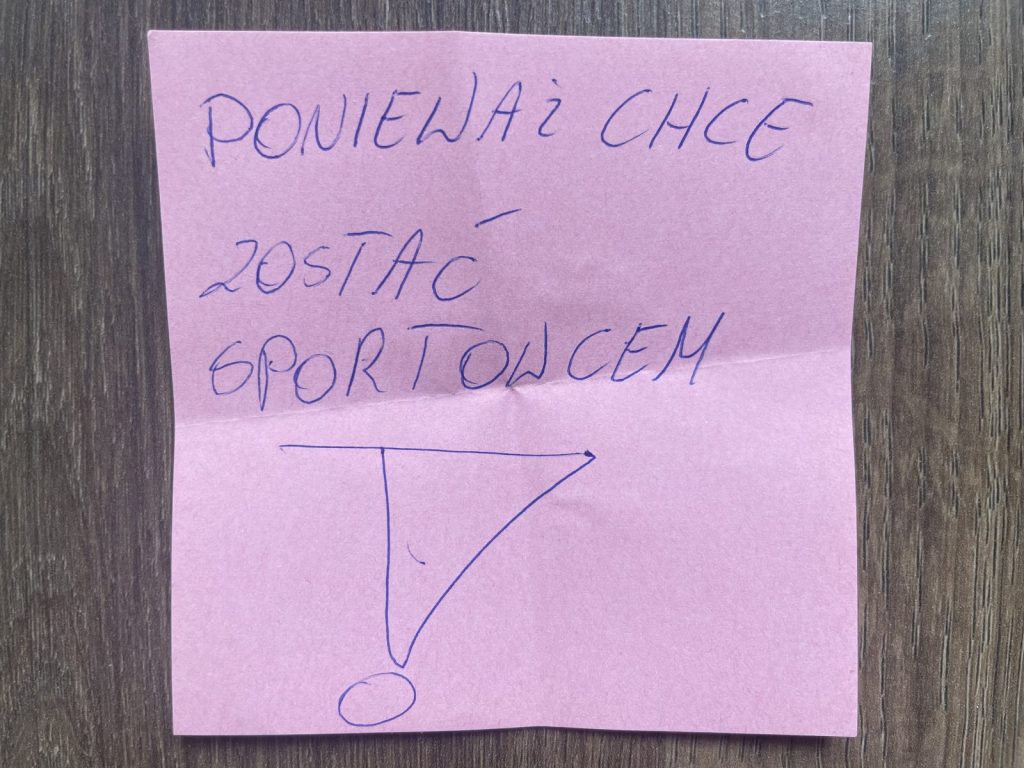 PONIEWAŻ CHCE
ZOSTAĆ
SPORTOWCEM